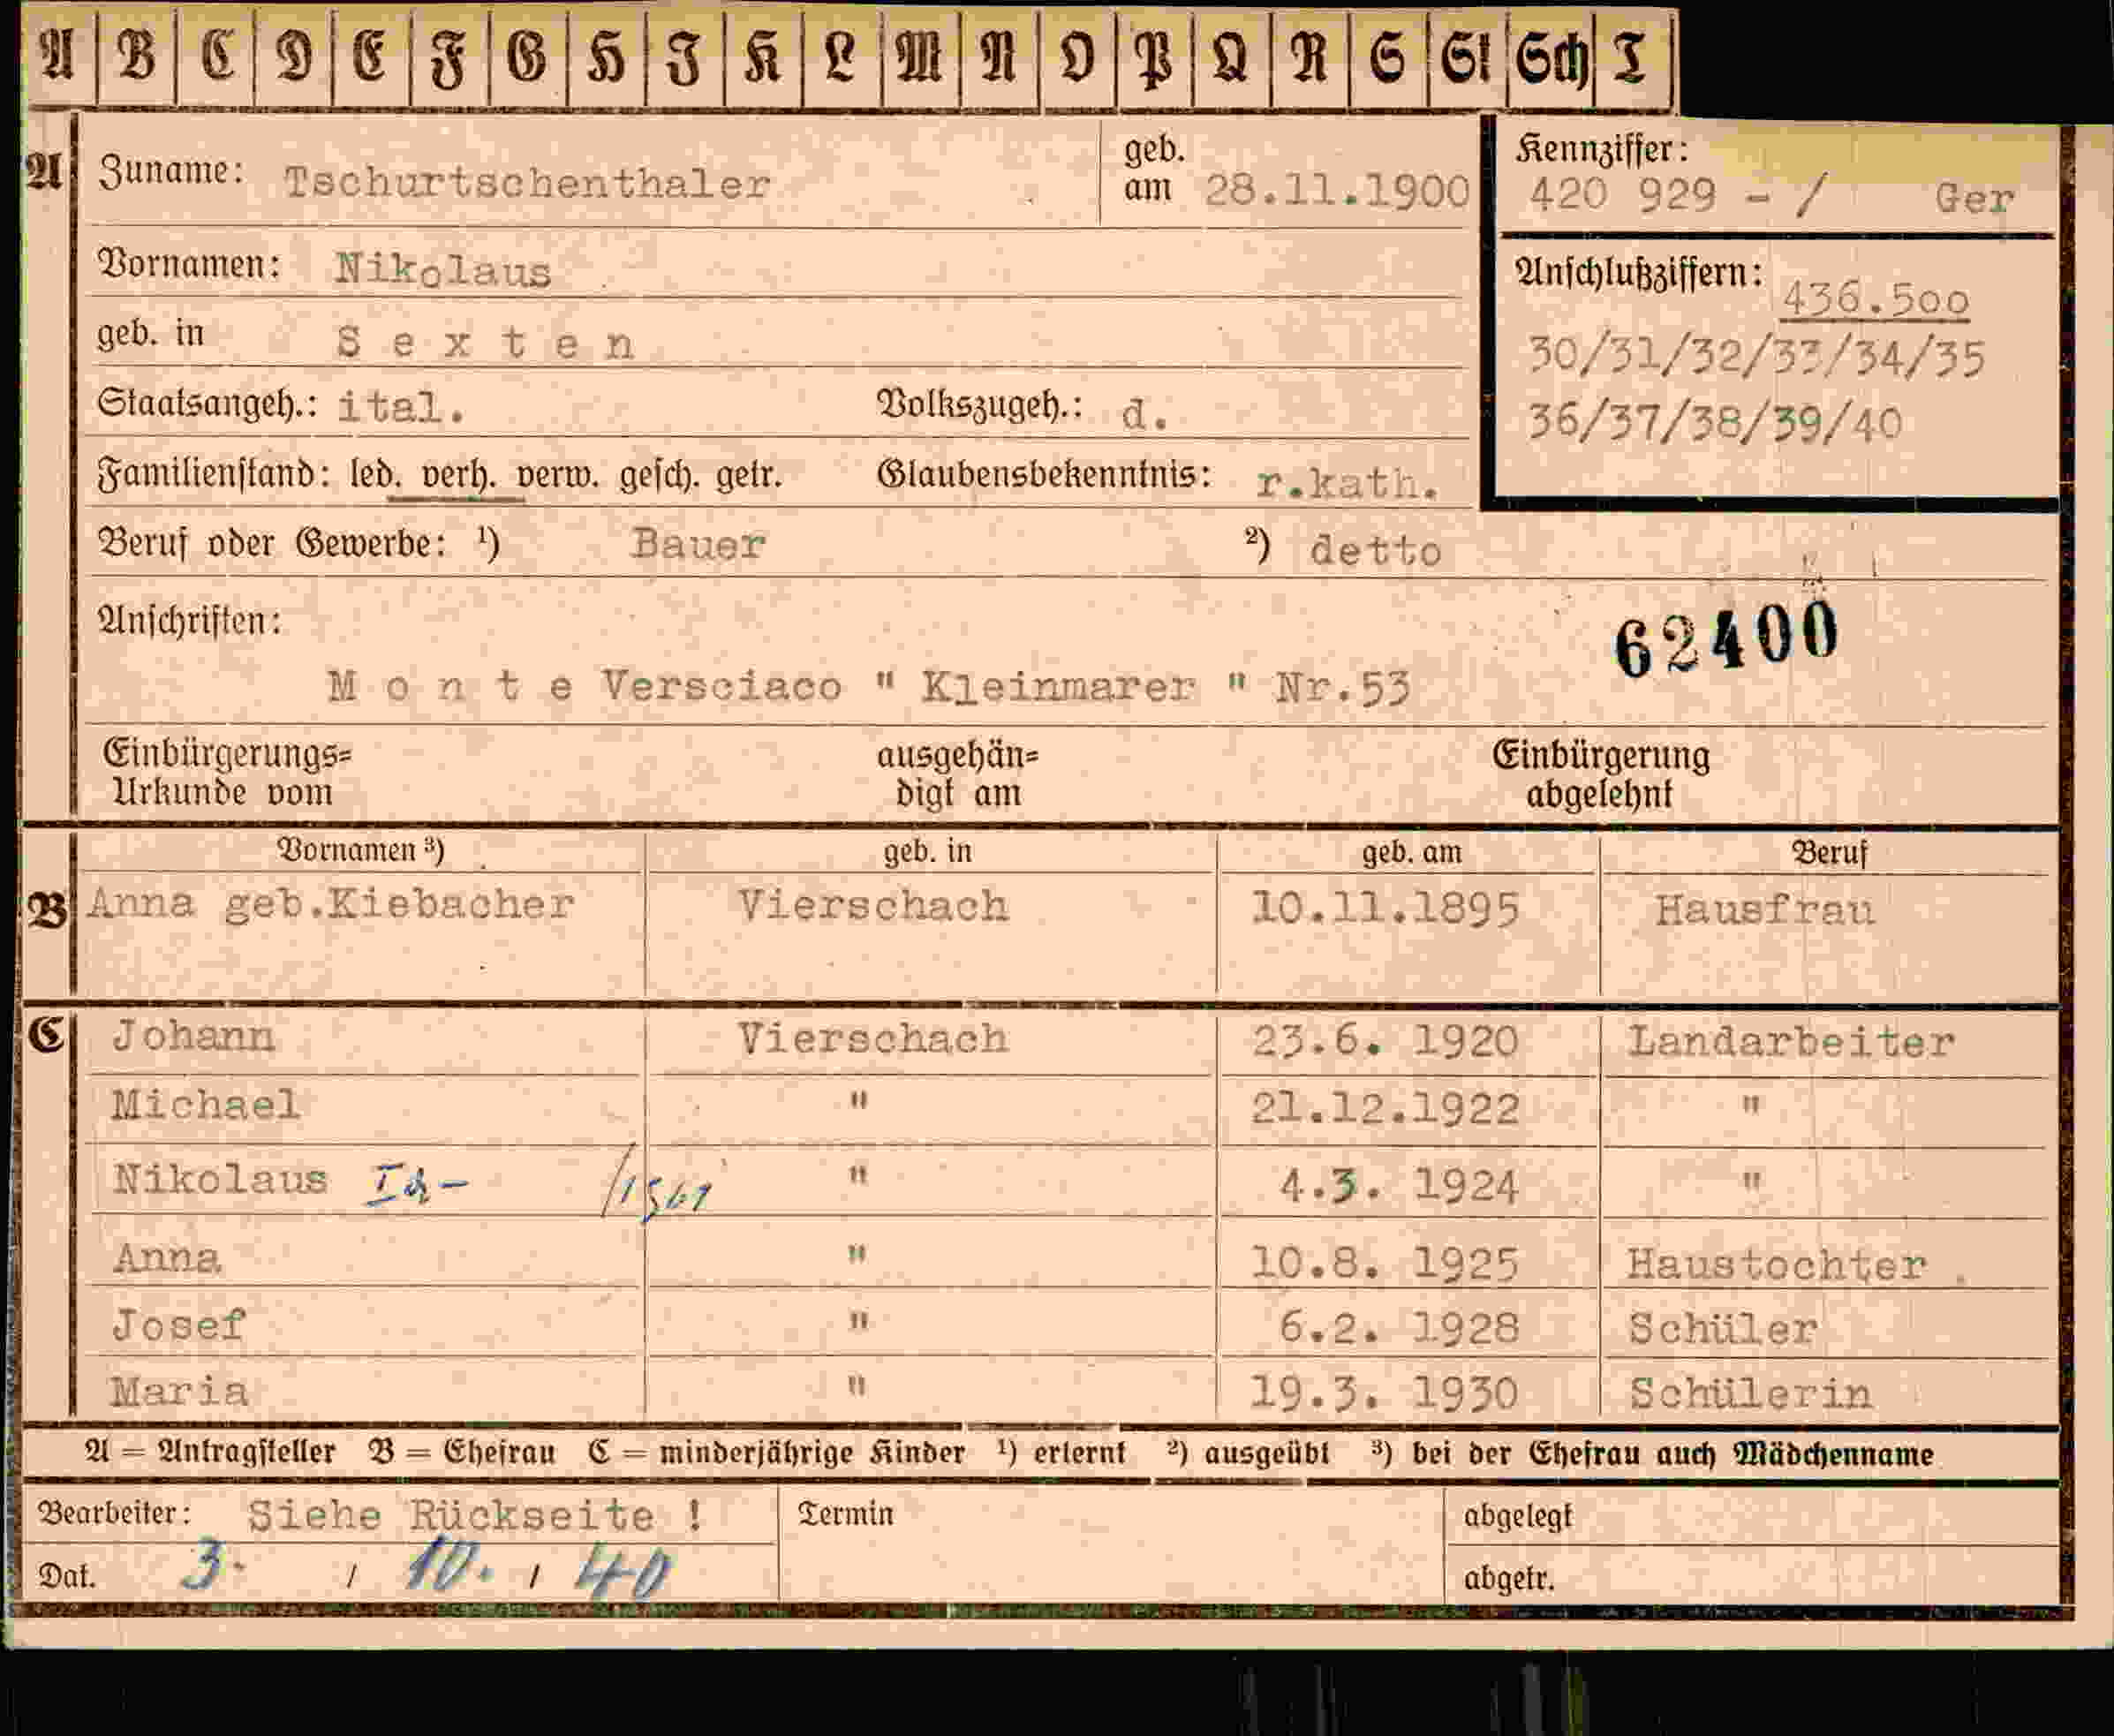 A B C D E F G H I K L M N O P Q R S St Sch T
A Zuname: Tschurtschenthaler geb. am 28.11.1900
Kennziffer:
420 929 - / Ger
Vornamen: Nikolaus
Anschlußziffern: 436.500
30/31/32/33/34/35
36/37/38/39/40
geb. in S e x t e n
Staatsangeh.: ital. Volkszugeh.: d.
Familienstand: led. verh. verw. gesch. getr. Glaubensbekenntnis: r.kath.
Beruf oder Gewerbe: ¹) Bauer ²) detto
Anschriften:
62400
M o n t e Versciaco " Kleinmarer " Nr.53
Einbürgerungs= ausgehän= Einbürgerung
Urkunde vom digt am abgelehnt
Vornamen ³) geb. in geb. am Beruf
B Anna geb.Kiebacher Vierschach 10.11.1895 Hausfrau
C Johann Vierschach 23.6. 1920 Landarbeiter
Michael " 21.12.1922 "
Nikolaus " 4.3. 1924 "
Anna " 10.8. 1925 Haustochter
Josef " 6.2. 1928 Schüler
Maria " 19.3. 1930 Schülerin
A = Antragsteller B = Ehefrau C = minderjährige Kinder ¹) erlernt ²) ausgeübt ³) bei der Ehefrau auch Mädchenname
Bearbeiter: Siehe Rückseite ! Termin abgelegt
Dat. 3. / 10. / 40 abgetr.